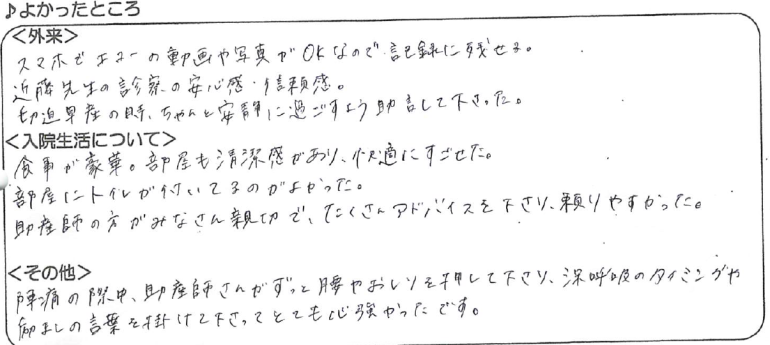 ♪よかったところ
<外来>
スマホでエコーの動画や写真がOKなので記録に残せる。
近藤先生の診察の安心感・信頼感。
切迫早産の時、ちゃんと安静に過ごすよう助言して下さった。
<入院生活について>
食事が豪華。部屋も清潔感があり、快適にすごせた。
部屋にトイレが付いてるのがよかった。
助産師の方がみなさん親切で、たくさんアドバイスを下さり、頼りやすかった。
<その他>
陣痛の際中、助産師さんがずっと腰やおしりを押して下さり、深呼吸のタイミングや
励ましの言葉を掛けて下さってとても心強かったです。